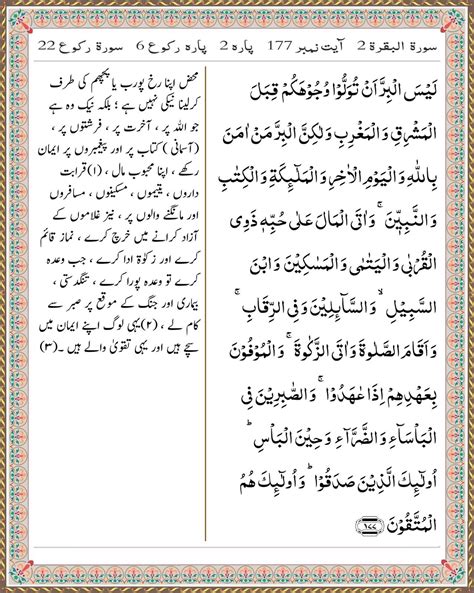 سورۃ البقرۃ 2 آیت نمبر 177 پارہ 2 پارہ رکوع 6 سورۃ رکوع 22
لَيْسَ الْبِرَّ اَنْ تُوَلُّوْا وُجُوْهَكُمْ قِبَلَ
الْمَشْرِقِ وَالْمَغْرِبِ وَلٰكِنَّ الْبِرَّ مَنْ اٰمَنَ
بِاللّٰهِ وَالْيَوْمِ الْاٰخِرِ وَالْمَلٰٓئِكَةِ وَالْكِتٰبِ
وَالنَّبِيّٖنَ ۚ وَاٰتَى الْمَالَ عَلٰى حُبِّهٖ ذَوِى
الْقُرْبٰى وَالْيَتٰمٰى وَالْمَسٰكِيْنَ وَابْنَ
السَّبِيْلِ ۙ وَالسَّآئِلِيْنَ وَفِى الرِّقَابِ ۚ
وَاَقَامَ الصَّلٰوةَ وَاٰتَى الزَّكٰوةَ ۚ وَالْمُوْفُوْنَ
بِعَهْدِهِمْ اِذَا عٰهَدُوْا ۚ وَالصّٰبِرِيْنَ فِى
الْبَاْسَآءِ وَالضَّرَّآءِ وَحِيْنَ الْبَاْسِ ؕ
اُولٰٓئِكَ الَّذِيْنَ صَدَقُوْا ؕ وَاُولٰٓئِكَ هُمُ
الْمُتَّقُوْنَ ﴿۱۷۷﴾
محض اپنا رخ پورب یا پچھم کی طرف
کرلینا نیکی نہیں ہے ؛ بلکہ نیک وہ ہے
جو اللہ پر ، آخرت پر ، فرشتوں پر ،
(آسمانی) کتاب پر اور پیغمبروں پر ایمان
رکھے ، اپنا محبوب مال ، (۱) قرابت
داروں ، یتیموں ، مسکینوں ، مسافروں
اور مانگنے والوں پر ، نیز غلاموں کے
آزاد کرانے میں خرچ کرے ، نماز قائم
کرے اور زکوٰۃ ادا کرے ، جب وعدہ
کرے تو وعدہ پورا کرے ، تنگدستی ،
بیماری اور جنگ کے موقع پر صبر سے
کام لے ، (۲) یہی لوگ اپنے ایمان میں
سچے ہیں اور یہی تقویٰ والے ہیں ۔(۳)